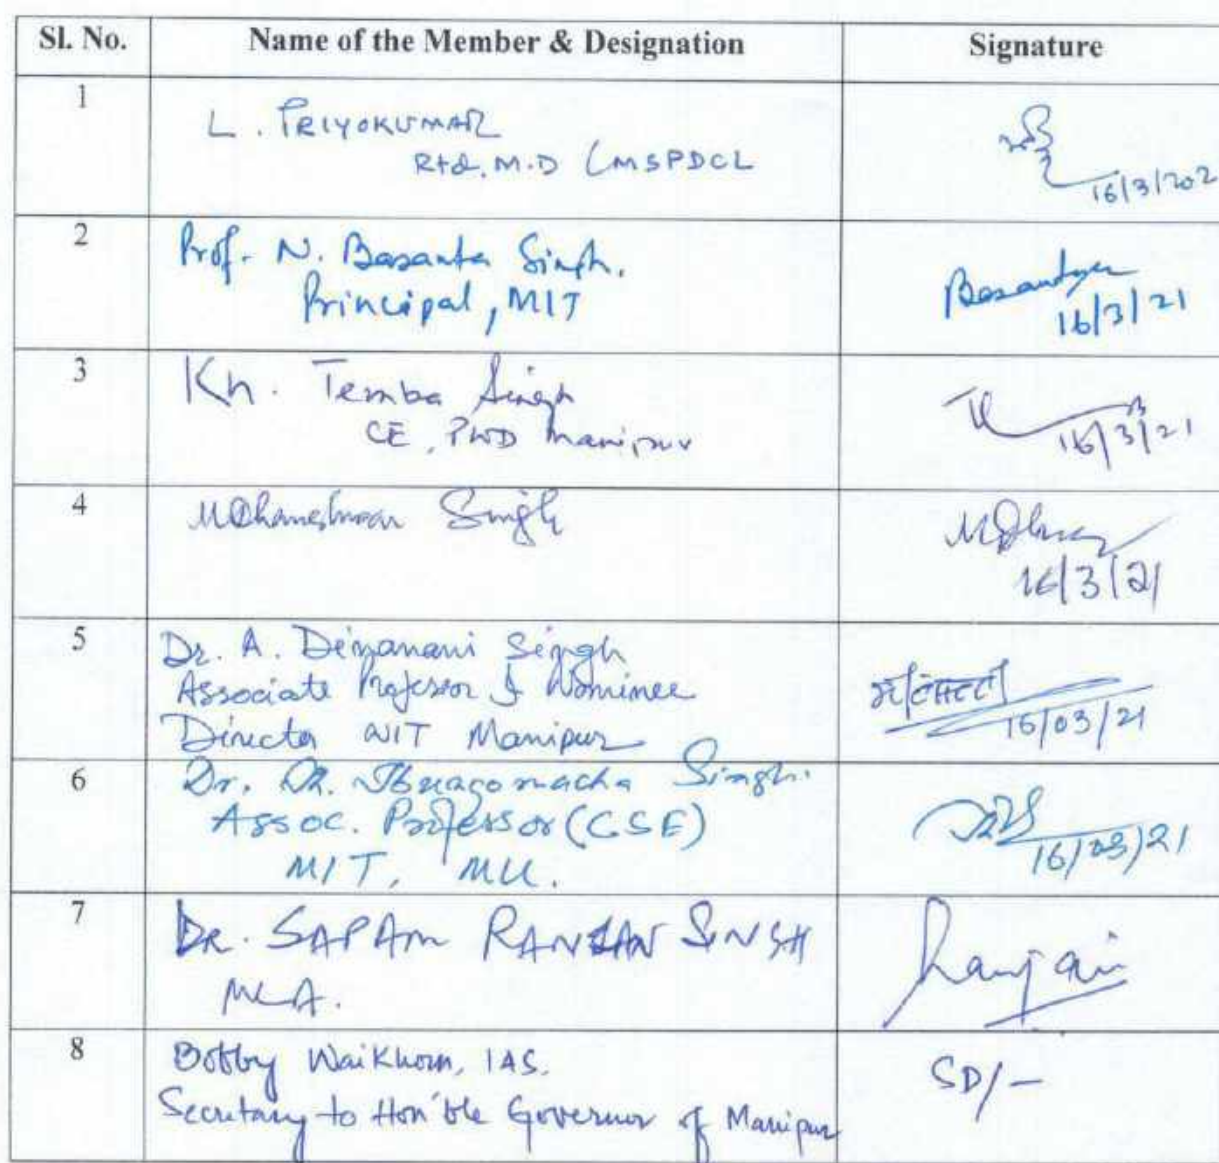 Sl. No. Name of the Member & Designation Signature
1
L. PRIYOKUMAR
Rtd. M.D (MSPDCL
16/3/202
2
Prof. N. Basanta Singh.
Principal, MIT
16/3/21
3
Kh. Temba Singh
CE, PWD Manipur
16/3/21
4
Singh
16/3/21
5
Dr. A. Dinamani Singh
Associate Professor & Nominee
Director NIT Manipur
16/03/21
6
Dr. Kh. Ibungomacha Singh.
Assoc. Professor (CSE)
MIT, MU.
16/03/21
7
DR. SAPAM RANJAN SINGH
MLA.
Ranjan
8
Bobby Waikhom, IAS.
Secretary to Hon'ble Governor of Manipur
SD/-